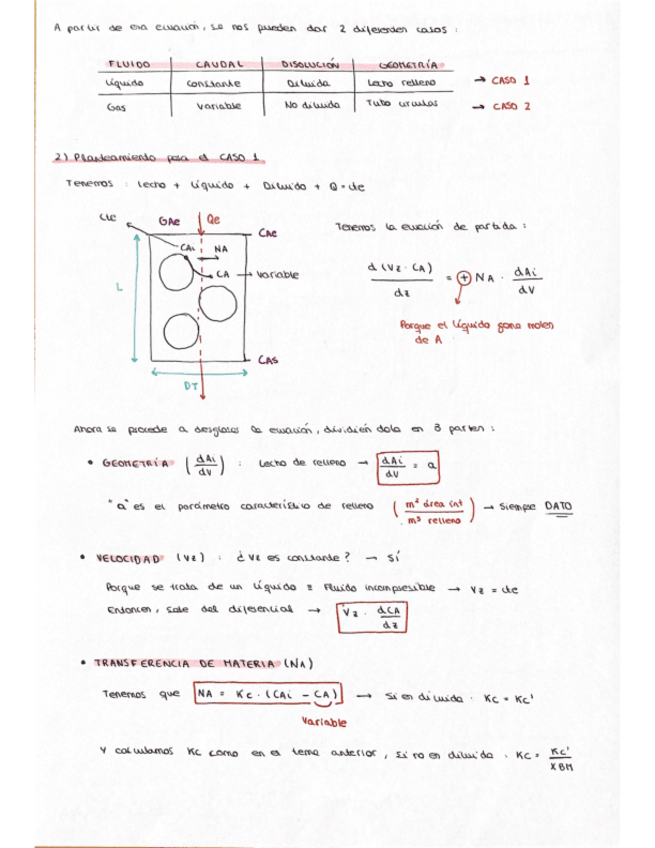 A partir de esa ecuación, se nos pueden dar 2 diferentes casos :
FLUIDO CAUDAL DISOLUCIÓN GEOMETRÍA
Líquido Constante Diluida Lecho relleno → CASO 1
Gas Variable No diluida Tubo → CASO 2
2) Planteamiento para el CASO 1
Tenemos : Lecho + Líquido + Diluido + Q=cte
cte GAe Qe CAe
Tenemos la ecuación de partida :
CAi NA
CA → Variable
L
d (Vz · CA) / dz = + NA · dAi / dV
Porque el líquido gana moles
de A
CAS
DT
Ahora se procede a desglosar la ecuación, dividiéndola en 3 partes :
• GEOMETRÍA (dAi/dV) : Lecho de relleno → dAi/dV = a
"a" es el parámetro característico de relleno (m² área int / m³ relleno) → Siempre DATO
• VELOCIDAD (Vz) : ¿Vz es constante? → Sí
Porque se trata de un Líquido ≡ Fluido incompresible → Vz = cte
Entonces, sale del diferencial → Vz · dCA/dz
• TRANSFERENCIA DE MATERIA (NA)
Tenemos que NA = Kc · (CAi − CA) → Si es diluida · Kc = Kc'
Variable
Y calculamos Kc como en el tema anterior, si no es diluida · Kc = Kc'/XBM